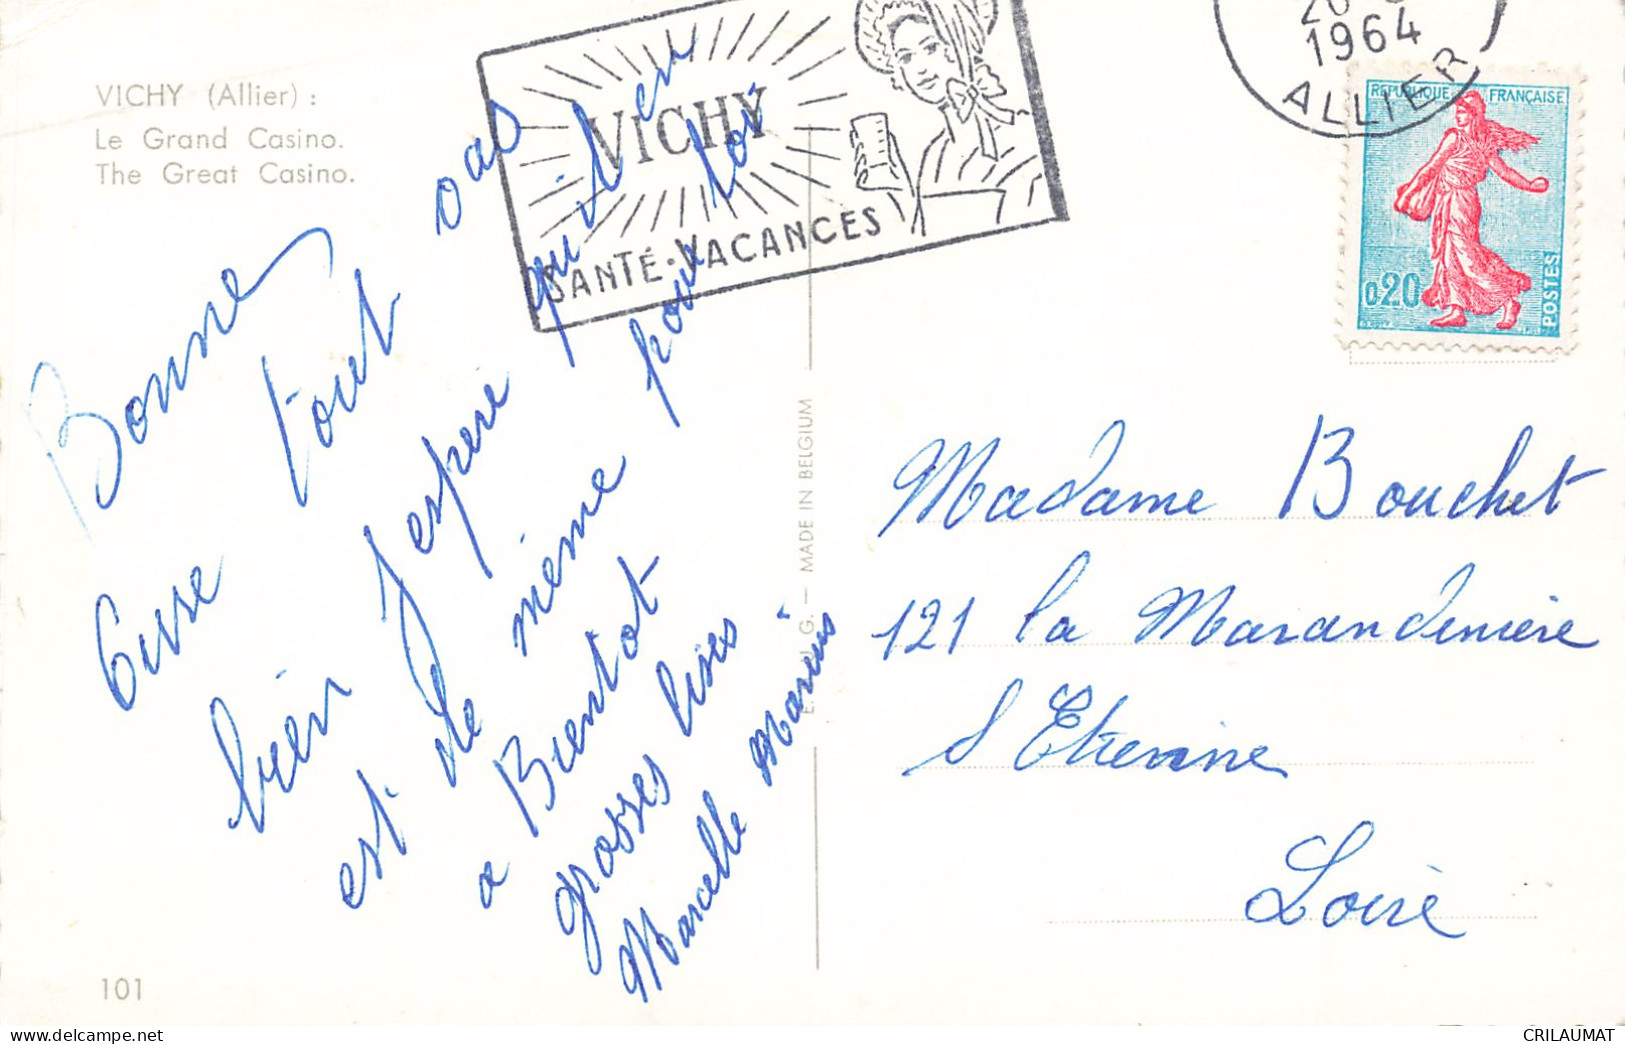 VICHY (Allier) :
Le Grand Casino.
The Great Casino.
VICHY
SANTÉ·VACANCES
1964
ALLIER
REPUBLIQUE FRANÇAISE
0,20
POSTES
Bonne
Cure tout vas
bien J espère qu'il en
est de même pour toi
a Bientot
grosses bises
Marcelle Marius
MADE IN BELGIUM
Madame Bouchet
121 la Marandinière
St Etienne
Loire
101
CRILAUMAT